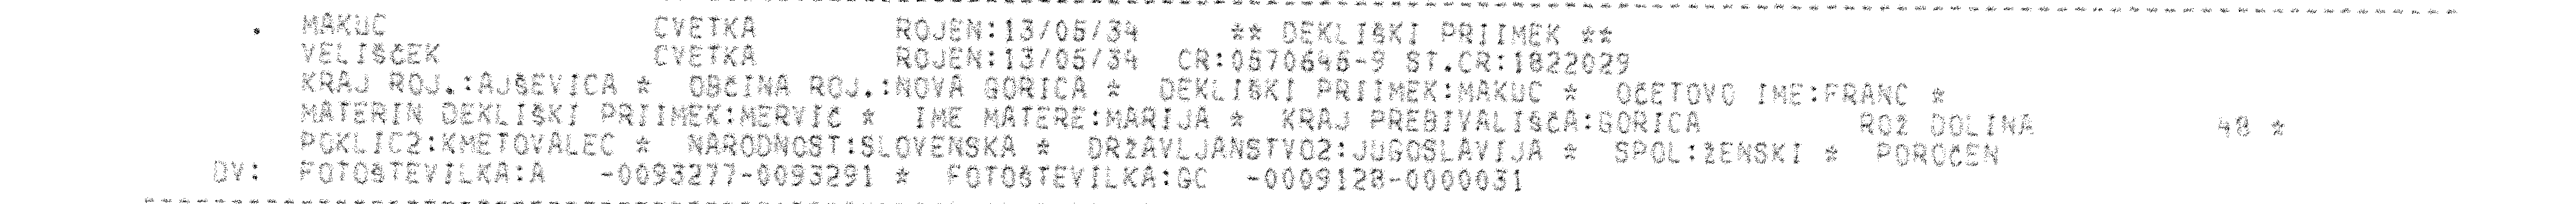 . MAKUC CVETKA ROJEN:13/05/34 ** DEKLIŠKI PRIIMEK **
VELIŠČEK CVETKA ROJEN:13/05/34 CR:0570645-9 ST.CR:1822029
KRAJ ROJ.:AJŠEVICA * OBČINA ROJ.:NOVA GORICA * DEKLIŠKI PRIIMEK:MAKUC * OČETOVO IME:FRANC *
MATERIN DEKLIŠKI PRIIMEK:MERVIČ * IME MATERE:MARIJA * KRAJ PREBIVALIŠČA:GORICA ROŽ DOLINA 48 *
POKLIC2:KMETOVALEC * NARODNOST:SLOVENSKA * DRŽAVLJANSTVO2:JUGOSLAVIJA * SPOL:ŽENSKI * POROČEN
DV: FOTOŠTEVILKA:A -0093277-0093291 * FOTOŠTEVILKA:GC -0009128-0000031